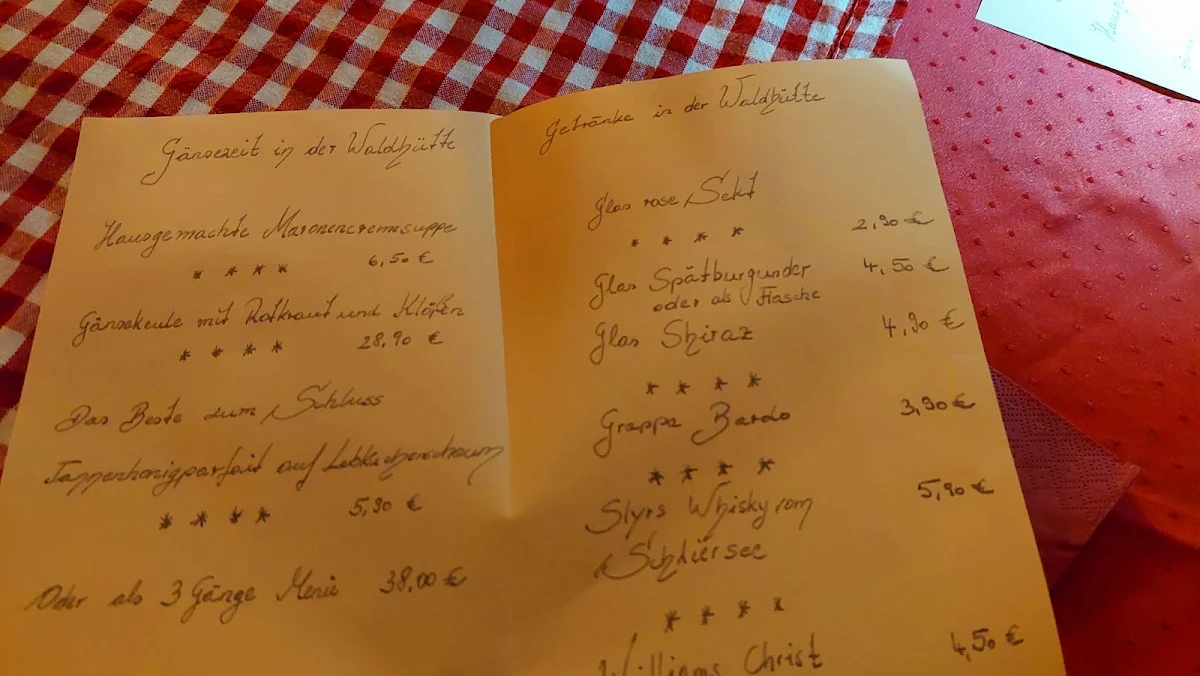 Gänsezeit in der Waldhütte
Hausgemachte Maronencremesuppe
* * * * 6,50 €
Gänsekeule mit Rotkraut und Klößen
* * * * 28,90 €
Das Beste zum Schluss
Tannenhonigparfait auf Lebkuchenschaum
* * * * 5,90 €
Oder als 3 Gänge Menü 38,00 €
Getränke in der Waldhütte
Glas rose Sekt 2,90 €
* * * *
Glas Spätburgunder 4,50 €
oder als Flasche
Glas Shiraz 4,90 €
* * * *
Grappa Bardo 3,90 €
* * * *
Slyrs Whisky vom 5,90 €
Schliersee
* * * *
Williams Christ 4,50 €